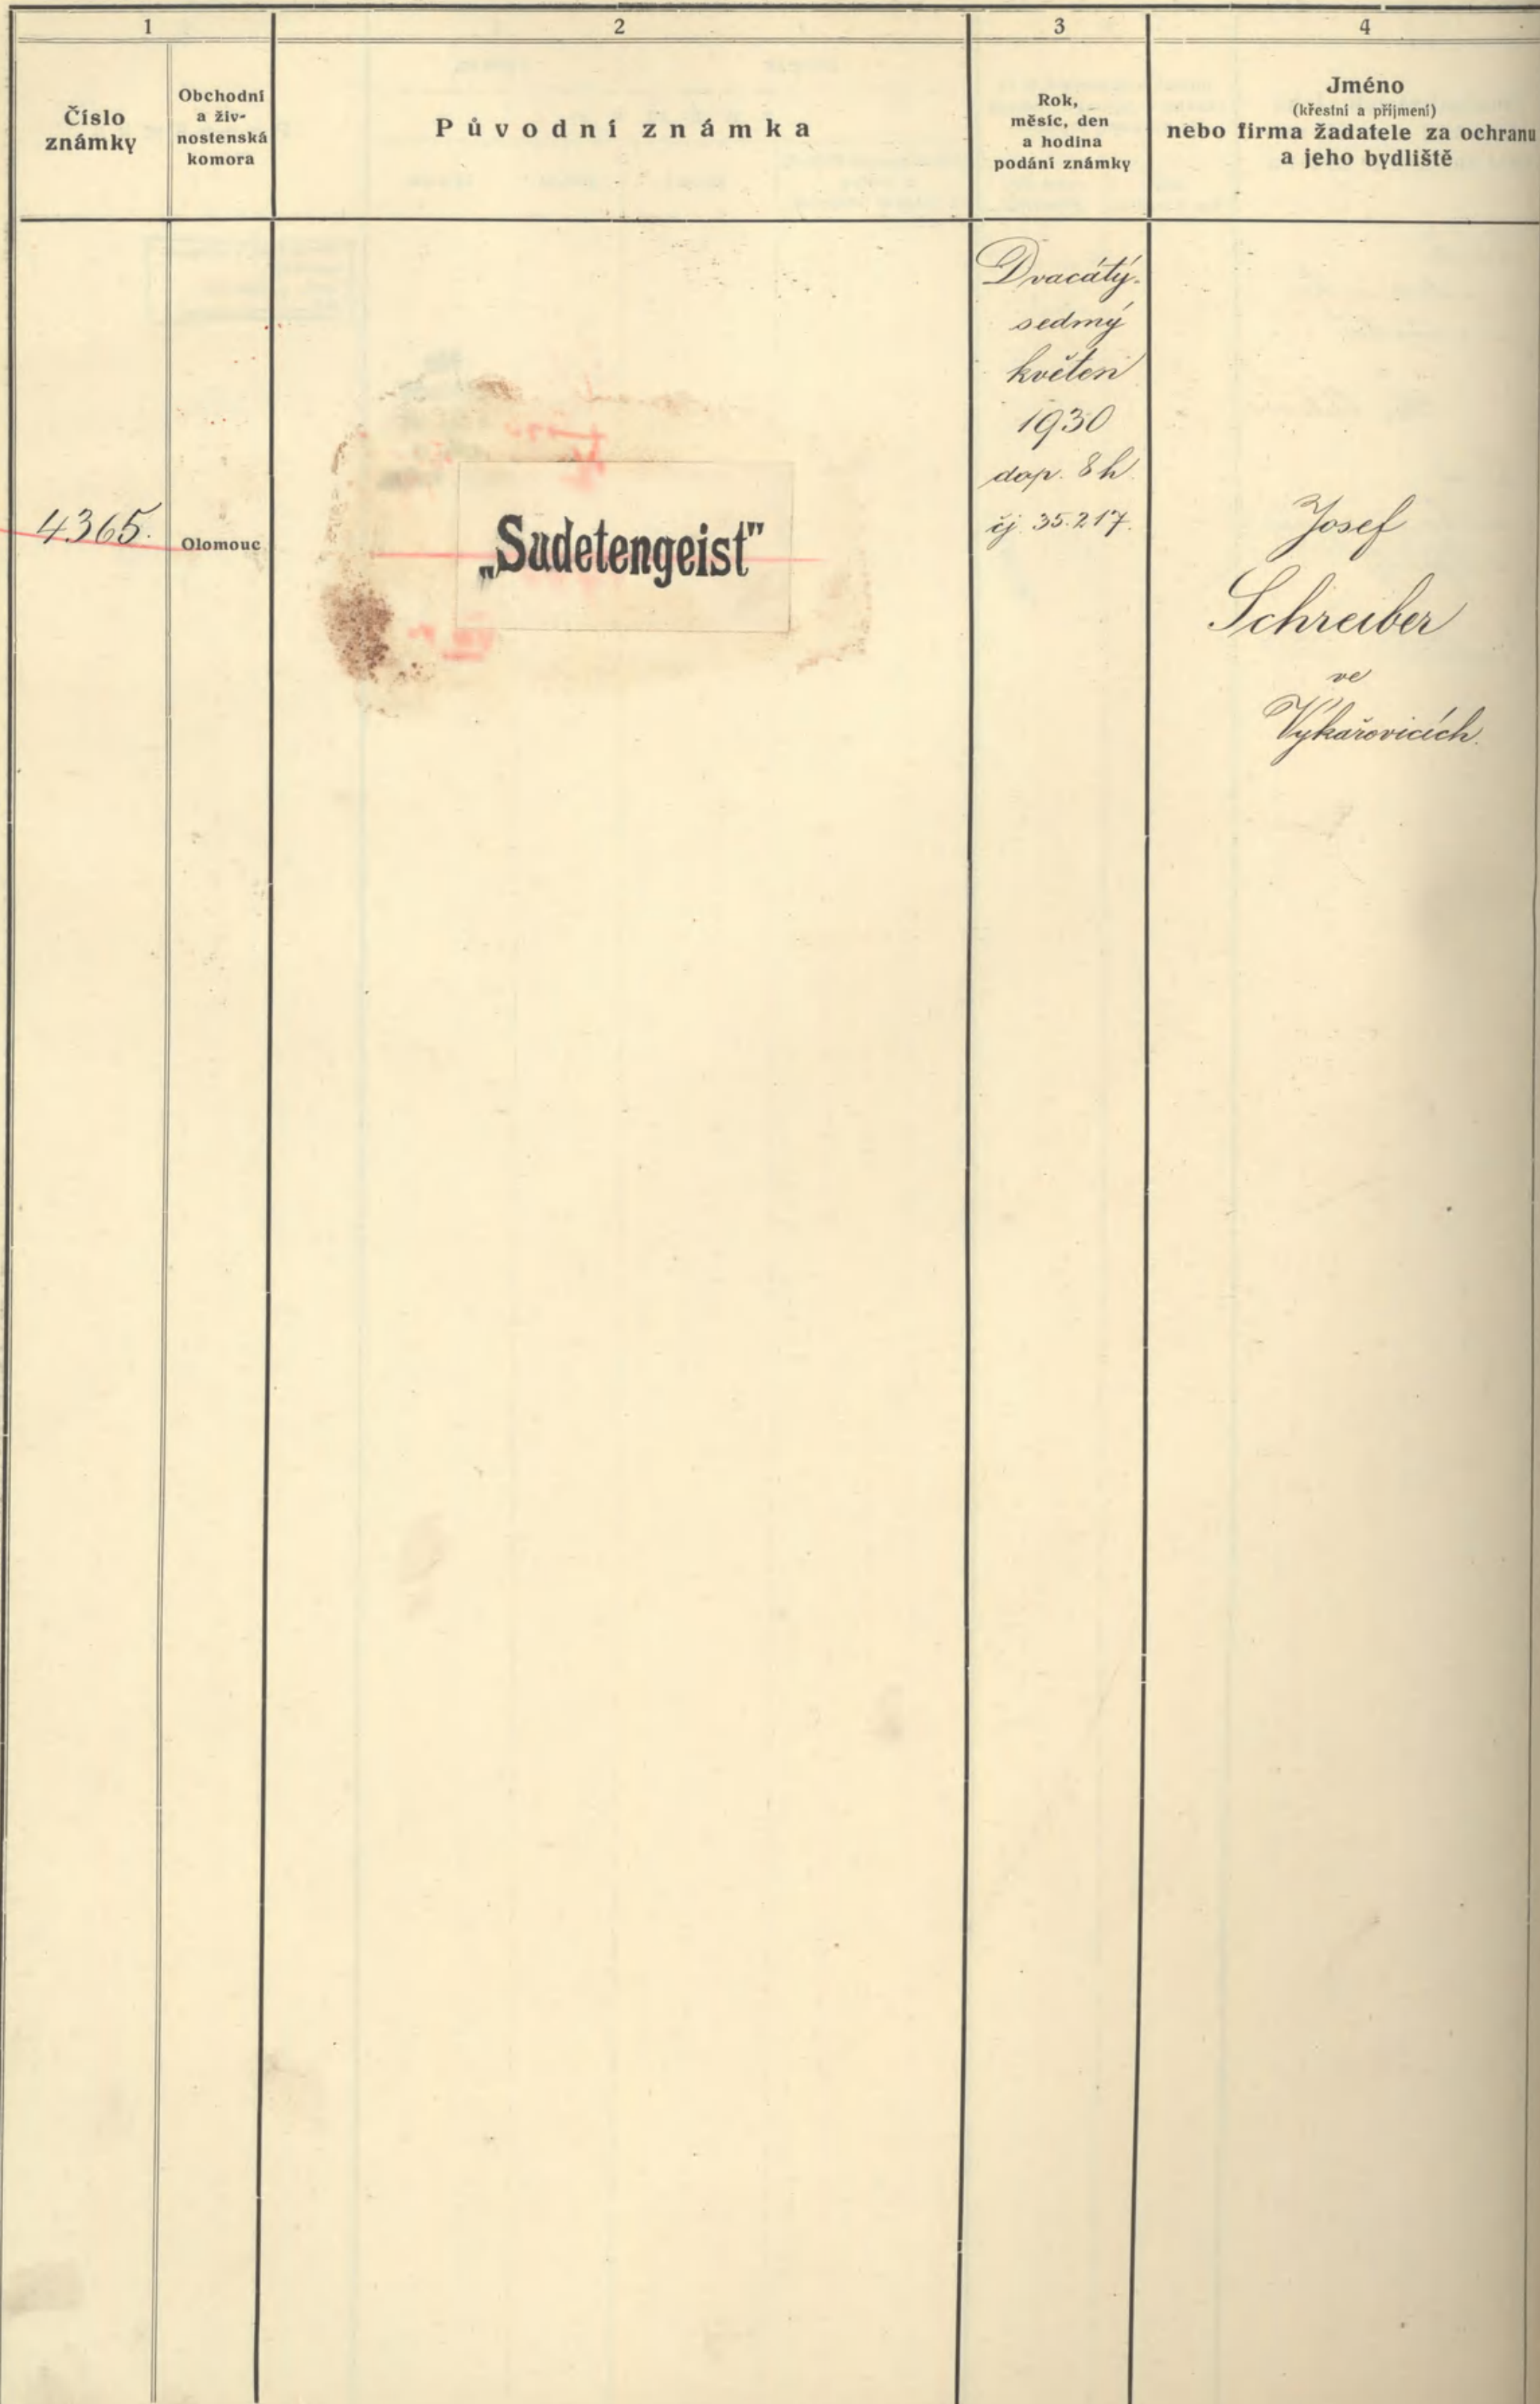 1
2
3
4
Číslo
známky
Obchodní
a živ-
nostenská
komora
Původní známka
Rok,
měsíc, den
a hodina
podání známky
Jméno
(křestní a příjmení)
nebo firma žadatele za ochranu
a jeho bydliště
4365.
Olomouc
„Sudetengeist"
Dvacátý-
sedmý
květen
1930
dop. 8 h.
čj. 35.217.
Josef
Schreiber
ve
Výkařovicích.